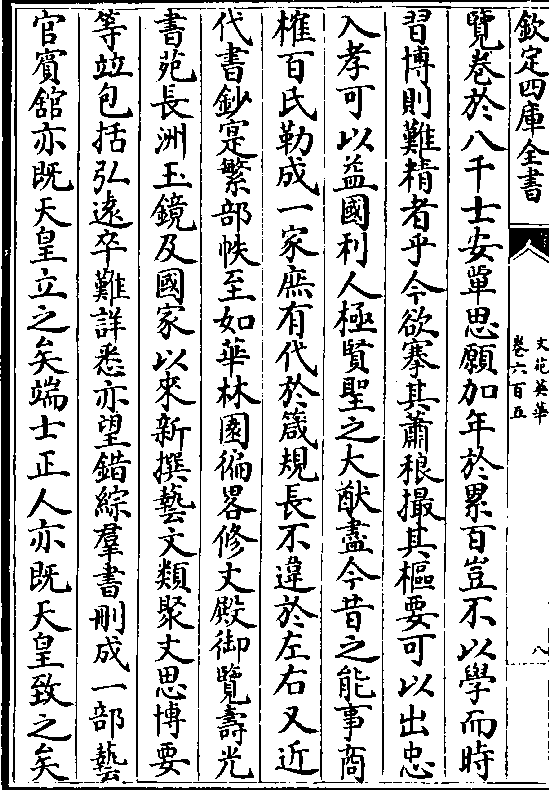 欽定四庫全書
文苑英華
卷六百五
八
覽卷於八千士安覃思願加年於累百豈不以學而時
習博則難精者乎今欲搴其蕭稂撮其樞要可以出忠
入孝可以益國利人極賢聖之大猷盡今昔之能事商
榷百氏勒成一家庶有代於箴規長不違於左右又近
代書鈔寔繁部帙至如華林園徧畧修文殿御覽壽光
書苑長洲玉鏡及國家以來新撰藝文類聚文思博要
等竝包括弘遠卒難詳悉亦望錯綜羣書刪成一部藝
官賓舘亦既天皇立之矣端士正人亦既天皇致之矣